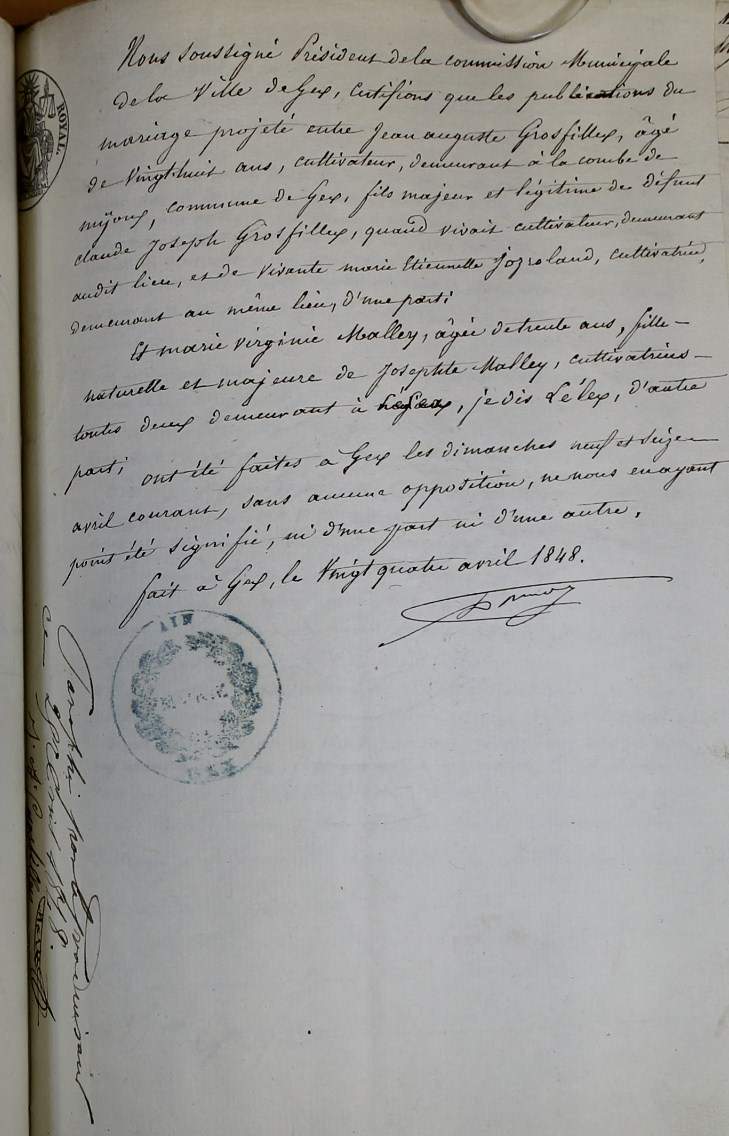 ROYAL.
Nous soussigné Président de la commission Municipale
de la Ville de Gex, certifions que les publications du
mariage projeté entre Jean auguste Grosfillex, âgé
de vingt huit ans, cultivateur, demeurant à la combe de
mijoux, commune de Gex, fils majeur et légitime de défunt
claude Joseph Grosfillex, quand vivait cultivateur, demeurant
audit lieu, et de vivante marie Etiennette cultivatrice,
demeurant au même lieu, d'une part;
Et marie virginie Malley, âgée de trente ans, fille
naturelle et majeure de Josephte Malley, cultivatrices
toutes deux demeurant à je dis Lélex, d'autre
part; ont été faites à Gex les dimanches neuf et seize
avril courant, sans aucune opposition, ne nous en ayant
point été signifié, ni d'une part ni d'une autre.
fait à Gex, le vingt quatre avril 1848.
AIN
MAIRIE
GEX
avril 1848.